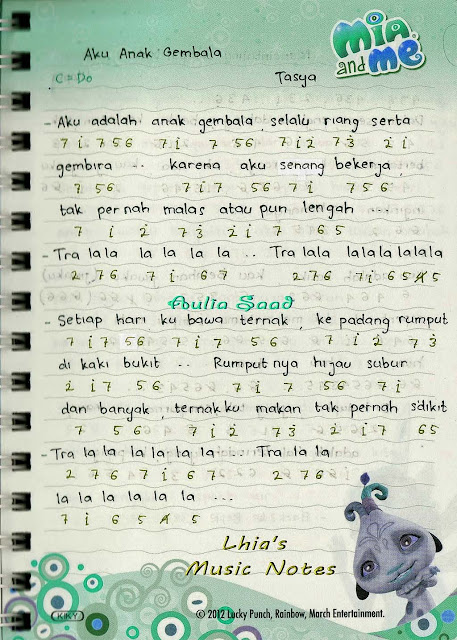 Mia
and me
Aku Anak Gembala
C = Do Tasya
- Aku adalah anak gembala, selalu riang serta
7 i 7 5 6 7 i 7 5 6 7 i 2 7 3 2 i
gembira .. karena aku senang bekerja,
7 5 6 7 i 7 5 6 7 i 7 5 6
tak pernah malas atau pun lengah ....
7 i 2 7 3 2 i 7 6 5
- Tra lala la la la la .. Tra lala lalalalala
2 7 6 7 i 6 7 2 7 6 7 i 6 5 4 5
Aulia Saad
- Setiap hari ku bawa ternak, ke padang rumput
7 i 7 5 6 7 i 7 5 6 7 i 2 7 3
di kaki bukit .. Rumput nya hijau subur
2 i 7 5 6 7 i 7 5 6 7 i
dan banyak ternakku makan tak pernah s'dikit
7 5 6 7 i 2 7 3 2 i 7 6 5
- Tra la la la la la la ... Tra la la
2 7 6 7 i 6 7 2 7 6
la la la la la la ...
7 i 6 5 4 5
Lhia's
Music Notes
KIKY
© 2012 Lucky Punch, Rainbow, March Entertainment.